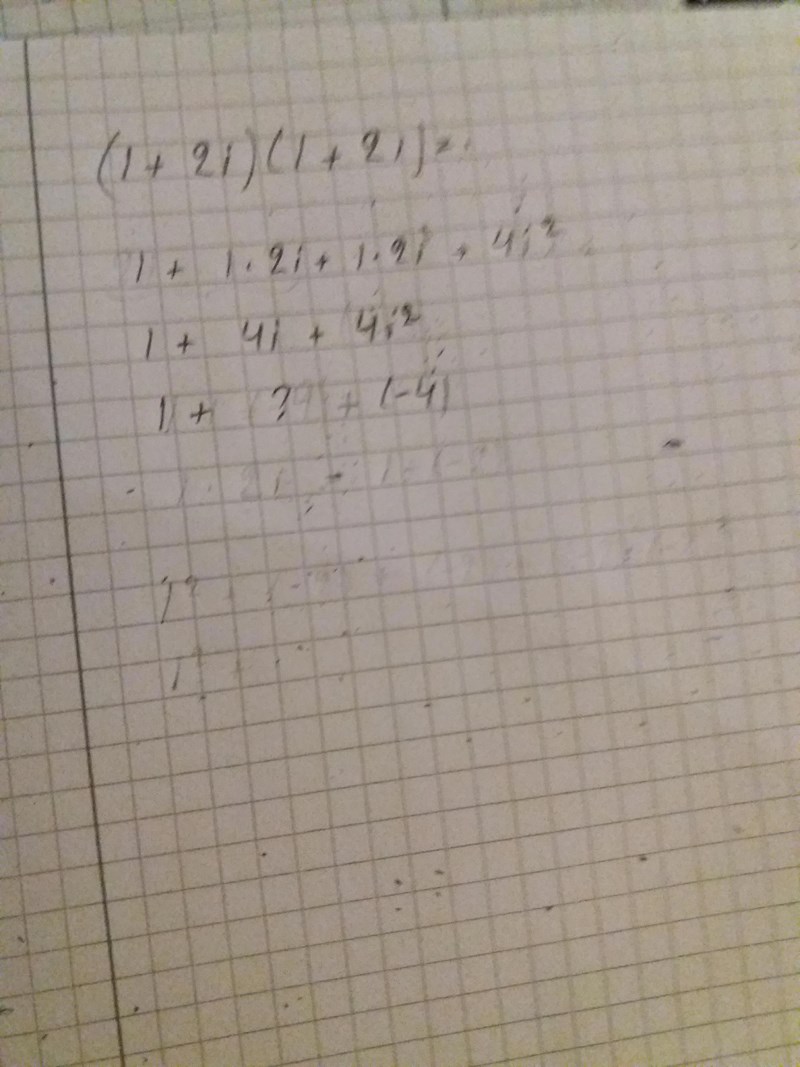 (1 + 2i)(1 + 2i) =
1 + 1·2i + 1·2i + 4i²
1 + 4i + 4i²
1 + ? + (-4)